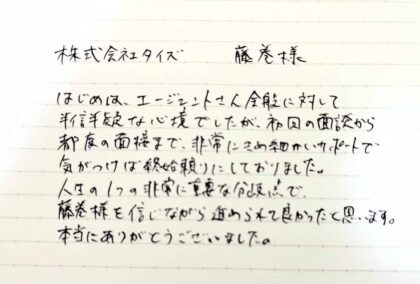 株式会社タイズ　藤巻様
はじめは、エージェントさん全般に対して
半信半疑な心境でしたが、初回の面談から
都度の面接まで、非常にきめ細かいサポートで
気がつけば終始頼りにしておりました。
人生の1つの非常に重要な分岐点で、
藤巻様を信じながら進められて良かったと思います。
本当にありがとうございました。